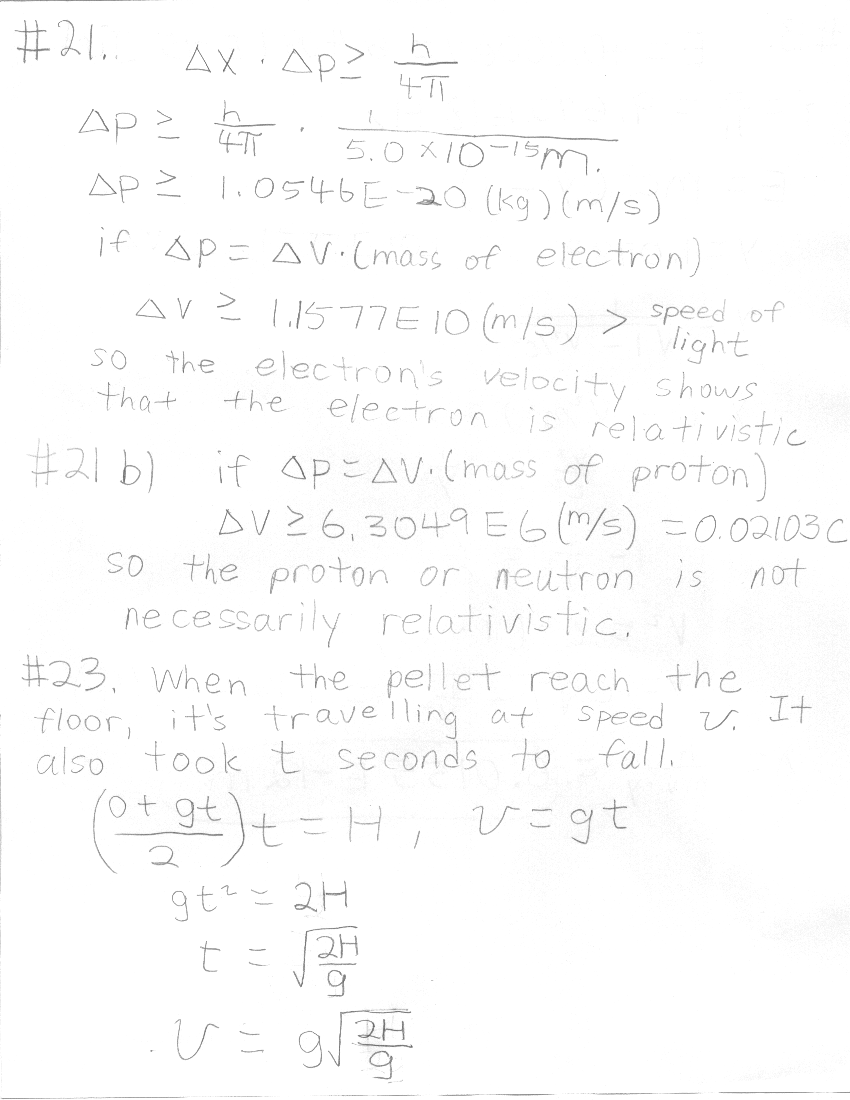 #21. Δx · Δp ≥ h/4π
Δp ≥ h/4π · 1/5.0 × 10^-15 m.
Δp ≥ 1.0546E-20 (kg)(m/s)
if Δp = Δv·(mass of electron)
Δv ≥ 1.1577E10 (m/s) > speed of light
so the electron's velocity shows
that the electron is relativistic
#21 b) if Δp = Δv·(mass of proton)
Δv ≥ 6.3049E6 (m/s) = 0.02103C
so the proton or neutron is not
necessarily relativistic.
#23. When the pellet reach the
floor, it's travelling at speed v. It
also took t seconds to fall.
((0 + gt)/2)t = H, v = gt
gt² = 2H
t = √(2H/g)
v = g√(2H/g)